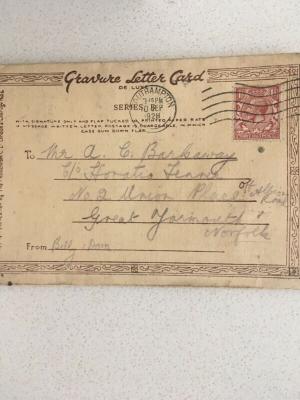 Gravure Letter Card
DE LUXE
SOUTHAMPTON
7 15 PM
SEP
1928
SERIES
WITH SIGNATURE ONLY AND FLAP TUCKED IN PRINTED PAPER RATE
IF MESSAGE WRITTEN LETTER POSTAGE IS CHARGEABLE, IN WHICH
CASE GUM DOWN FLAP
To Mr A. C. Barkaway
C/o Horatio
No 2 Union Place
Off
Road
Great Yarmouth
Norfolk
From Billy